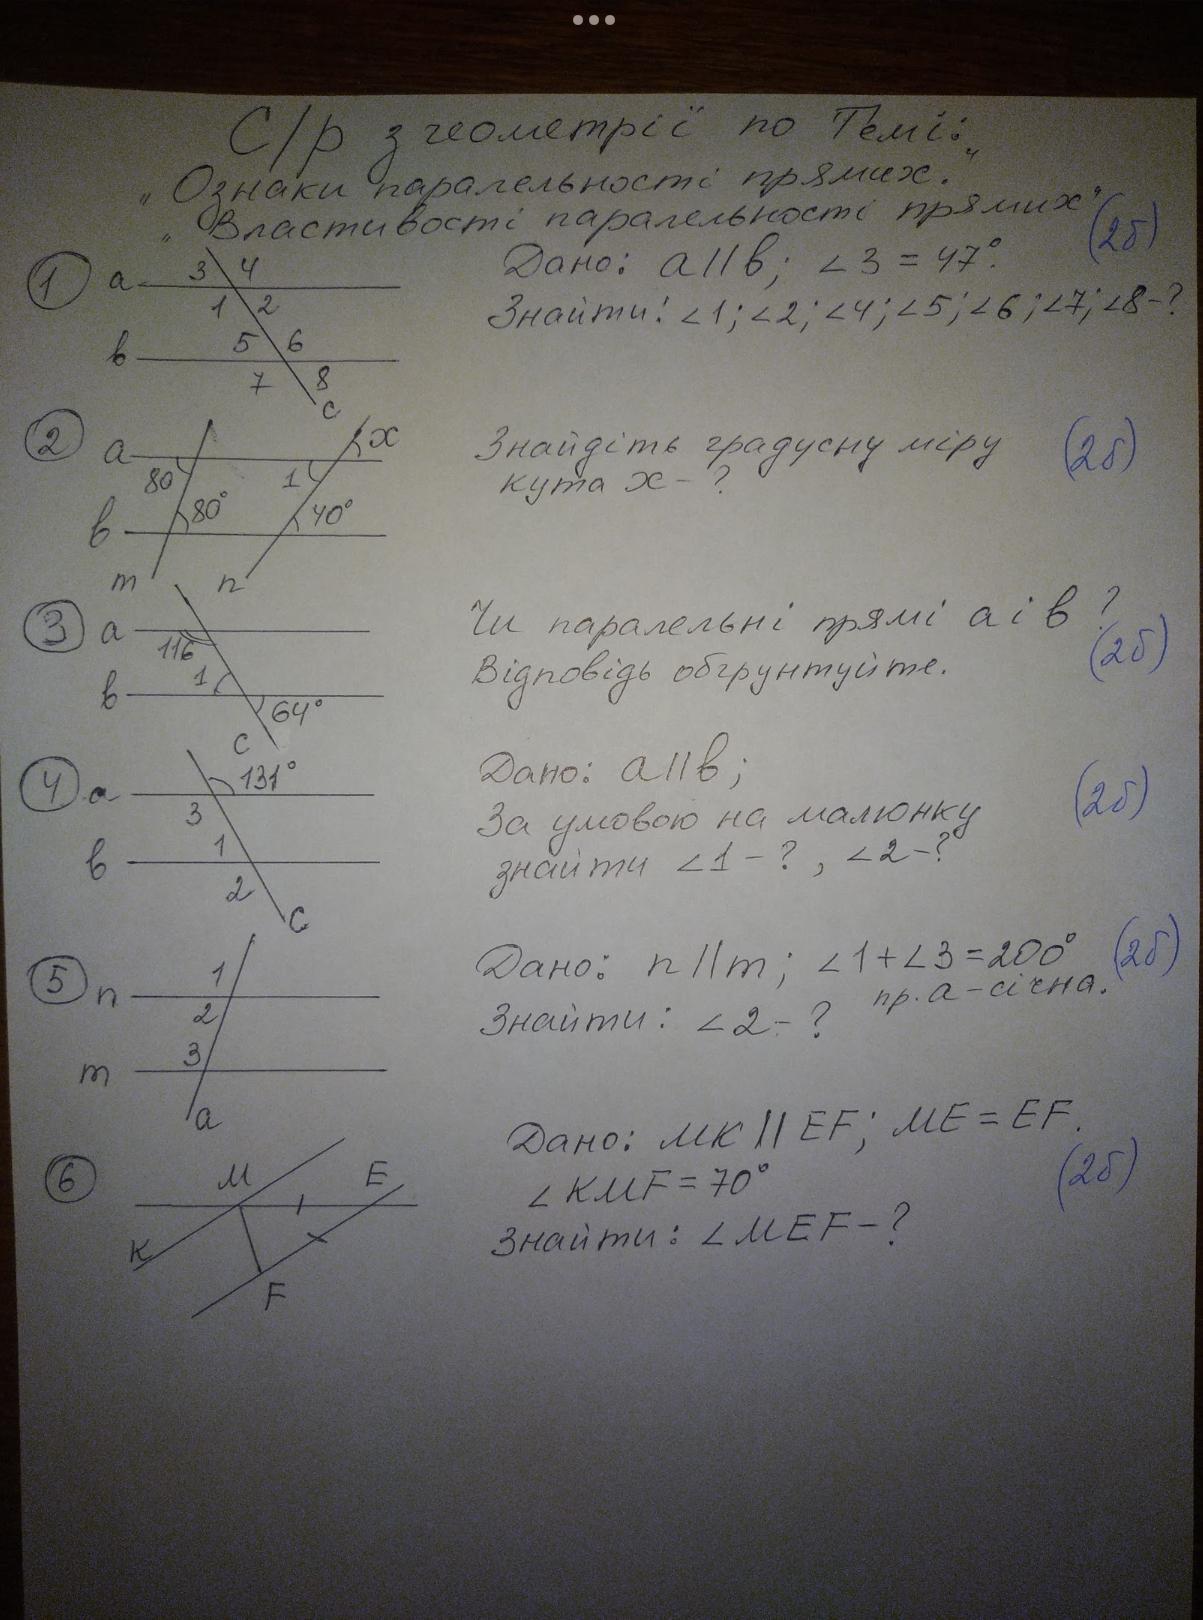 С/р з геометрії по Темі:
„Ознаки паралельності прямих."
„Властивості паралельності прямих"
(2б)
1 a 3 4 1 2 b 5 6 7 8 c
Дано: a∥b; ∠3=47°.
Знайти: ∠1; ∠2; ∠4; ∠5; ∠6; ∠7; ∠8-?
2 a 80 80° 1 x 40° b m n
Знайдіть градусну міру (2б)
кута x-?
3 a 116 1 b 64° c
Чи паралельні прямі a і b?
Відповідь обгрунтуйте. (2б)
4 a 131° 3 1 b 2 c
Дано: a∥b;
За умовою на малюнку (2б)
знайти ∠1-?, ∠2-?
5 n 1 2 3 m a
Дано: n∥m; ∠1+∠3=200° (2б)
пр. a-січна.
Знайти: ∠2-?
6 M E K F
Дано: MK∥EF; ME=EF.
∠KMF=70° (2б)
Знайти: ∠MEF-?